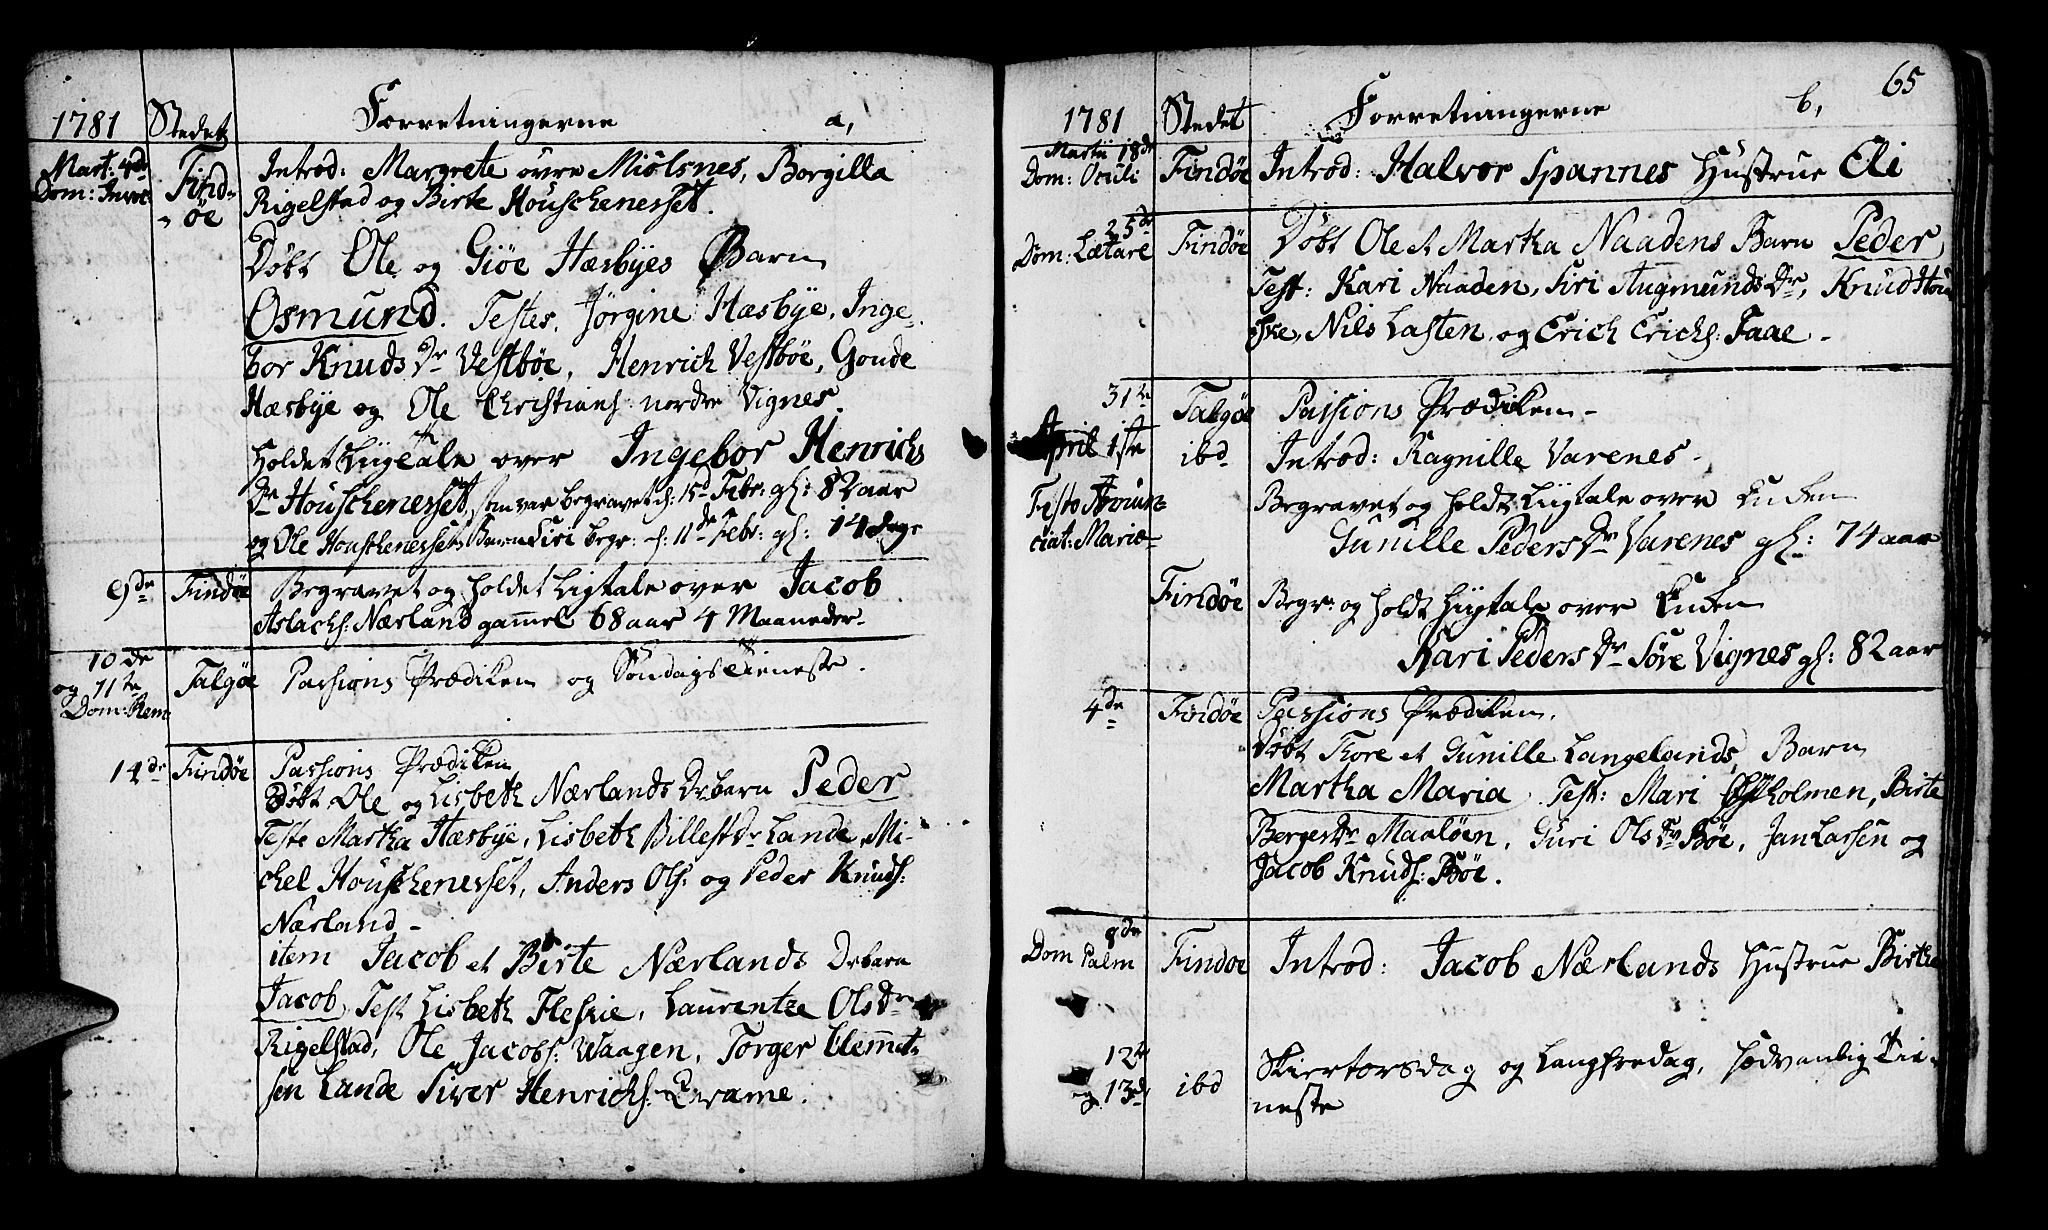 1781 Stedet Forretningerne a,
Mart: 4de Find- Introd: Margrete øvre Miølsnes, Borgilla
Dom: Invoc øe Rigelstad og Birte Houschenesset.
Døbt Ole og Giøe Hæsbyes Barn
Osmund. Testes, Jørgine Hæsbye, Inge-
bor Knuds Dr Vestbøe, Henrich Vestbøe, Gonde
Hæsbye og Ole Christians: nordre Vignes.
Holdet Liigtale over Ingebor Henrichs
Dr Houschenesset, som var begravet d: 15d Febr: gl: 82 aar
og Ole Houschenessets Barn Siri begr: d: 11de Febr: gl: 14 dage
9de Findøe Begravet og holdet Ligtale over Jacob
Aslachs: Nærland gammel 68 aar 4 Maaneder.
10de
og 11te Talgøe Passions Prædiken og Søndags Tieneste.
Dom: Rem
14de Findøe Passions Prædiken
Døbt Ole og Lisbeth Nærlands Drbarn Peder
Teste Martha Hæsbye, Lisbeth Billests Dr Lande, Mi-
chel Houschenesset, Anders Ols: og Peder Knuds:
Nærland -
item Jacob et Birte Nærlands Drbarn
Jacob, Test Lisbeth Fleskie, Laurentze Ols Dr
Rigelstad, Ole Jacobs: Waagen, Torger Clemet-
sen Lande Siver Henrichs: Qvame.
65
1781 Stedet Forretningerne b,
Martii 18de
Dom: Oculi Findøe Introd: Halvor Spannes Hustrue Eli
25de
Dom: Lætare Findøe Døbt Ole et Martha Naadens Barn Peder
Test: Kari Naaden, Siri Augmunds Dr, Knud Hou-
ske, Nils Lasten og Erich Erichs: Faae -
31te Talgøe Passions Prædiken -
April 1ste ibd Introd: Ragnille Varenes -
Festo Anun- Begravet og holdt Liigtale over Enken
ciat: Mariæ Gunille Peders Dr Varenes gl: 74 aar
Findøe Begr: og holdt Liigtale over Enken
Kari Peders Dr Søre Vignes gl: 82 aar
4de Findøe Passions Prædiken.
Døbt Thore et Gunille Langelands Barn
Martha Maria Test: Mari Østholmen, Birte
Berges Dr Maaløen, Guri Ols Dr Bøe, Jan Larsen og
Jacob Knuds: Bøe.
8de
Dom Palm Findøe Introd: Jacob Nærlands Hustrue Birthe
12te
og 13de ibd Skiertorsdag og Langfredag, sædvanlig Tie-
neste